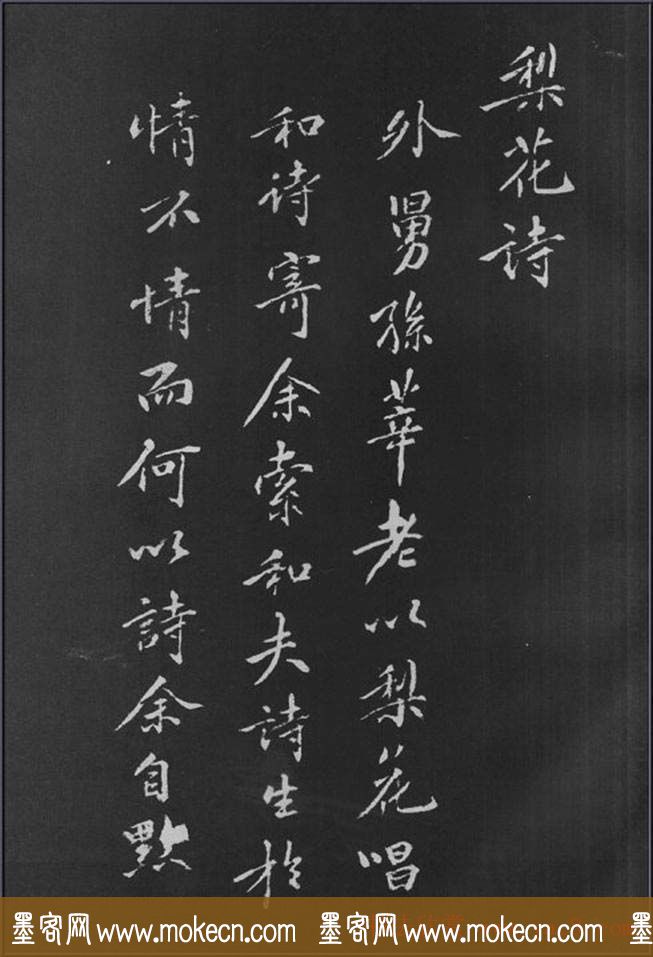 梨花詩
外舅孫莘老以梨花唱
和诗寄余索和夫詩生於
情不情而何以詩余自黜
墨客网 www.mokecn.com 墨客网 www.mokecn.com